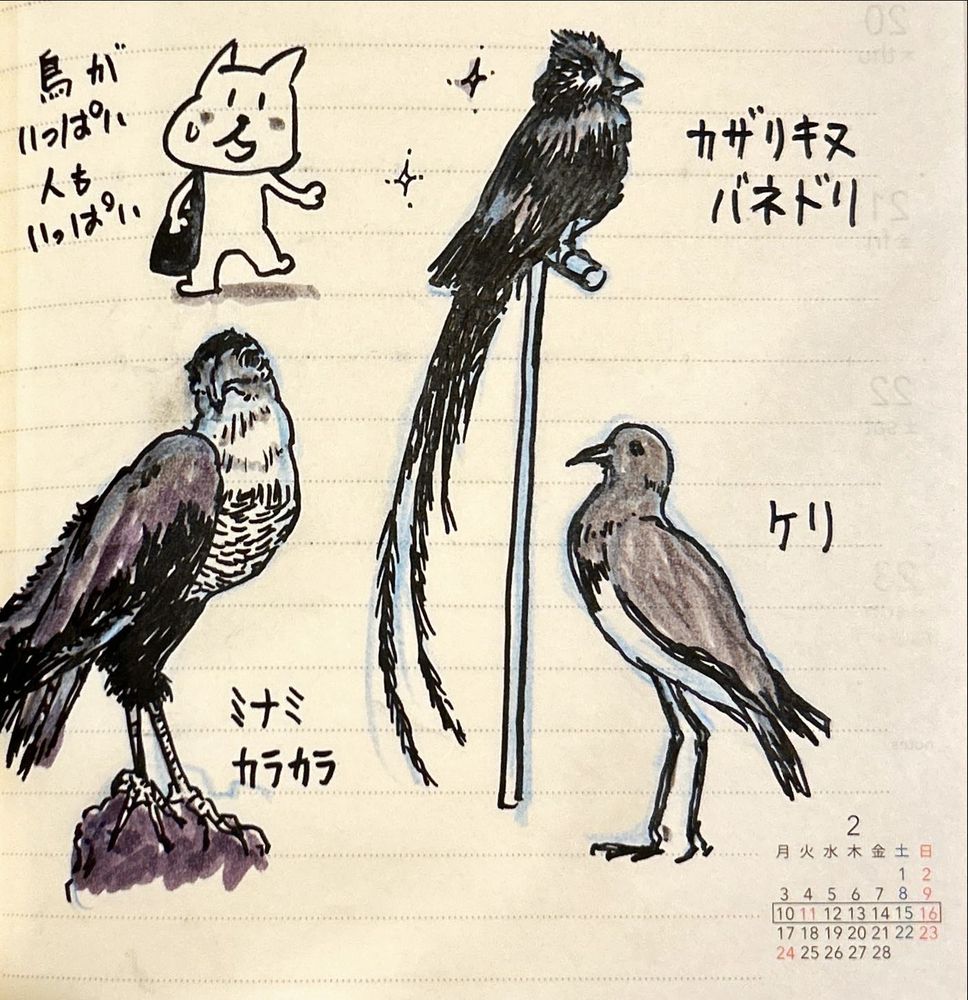 鳥が
いっぱい
人も
いっぱい
カザリキヌ
バネドリ
ケリ
ミナミ
カラカラ
2
月 火 水 木 金 土 日
1 2
3 4 5 6 7 8 9
10 11 12 13 14 15 16
17 18 19 20 21 22 23
24 25 26 27 28
20
thu
21
fri
22
sat
23
notes